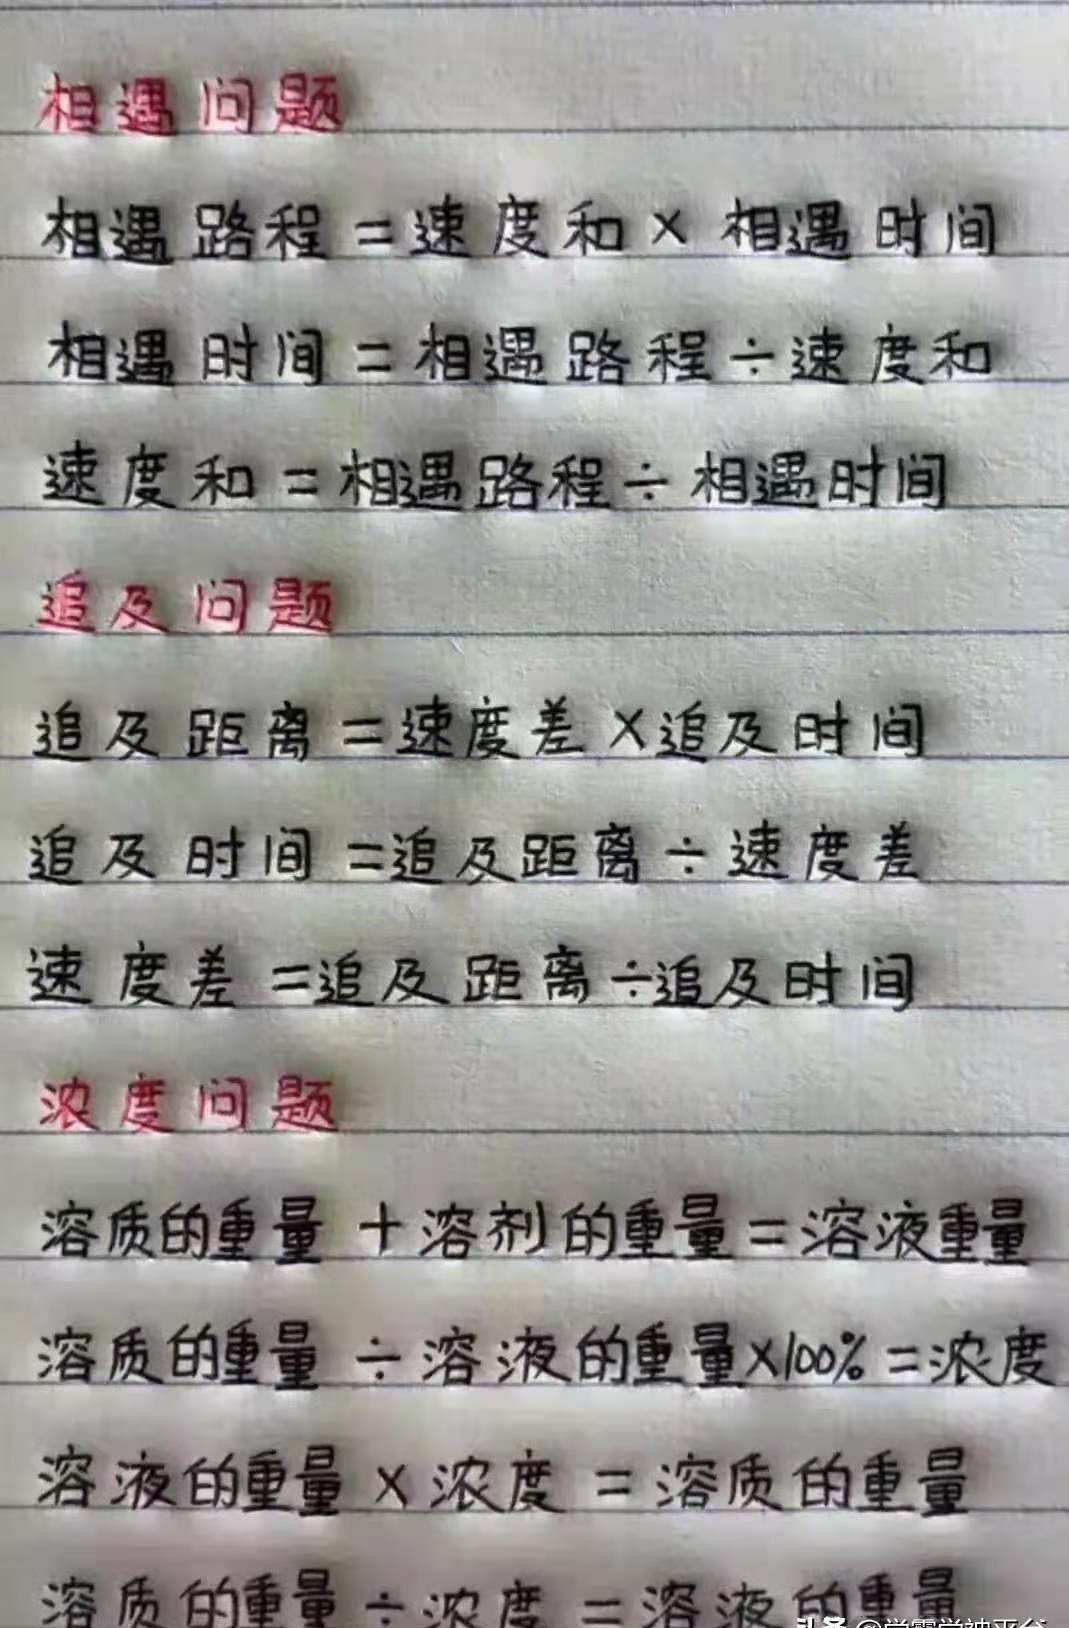 相遇问题
相遇路程=速度和×相遇时间
相遇时间=相遇路程÷速度和
速度和=相遇路程÷相遇时间
追及问题
追及距离=速度差×追及时间
追及时间=追及距离÷速度差
速度差=追及距离÷追及时间
浓度问题
溶质的重量+溶剂的重量=溶液重量
溶质的重量÷溶液的重量×100%=浓度
溶液的重量×浓度=溶质的重量
溶质的重量÷浓度=溶液的重量
头条 @学霸学神平台